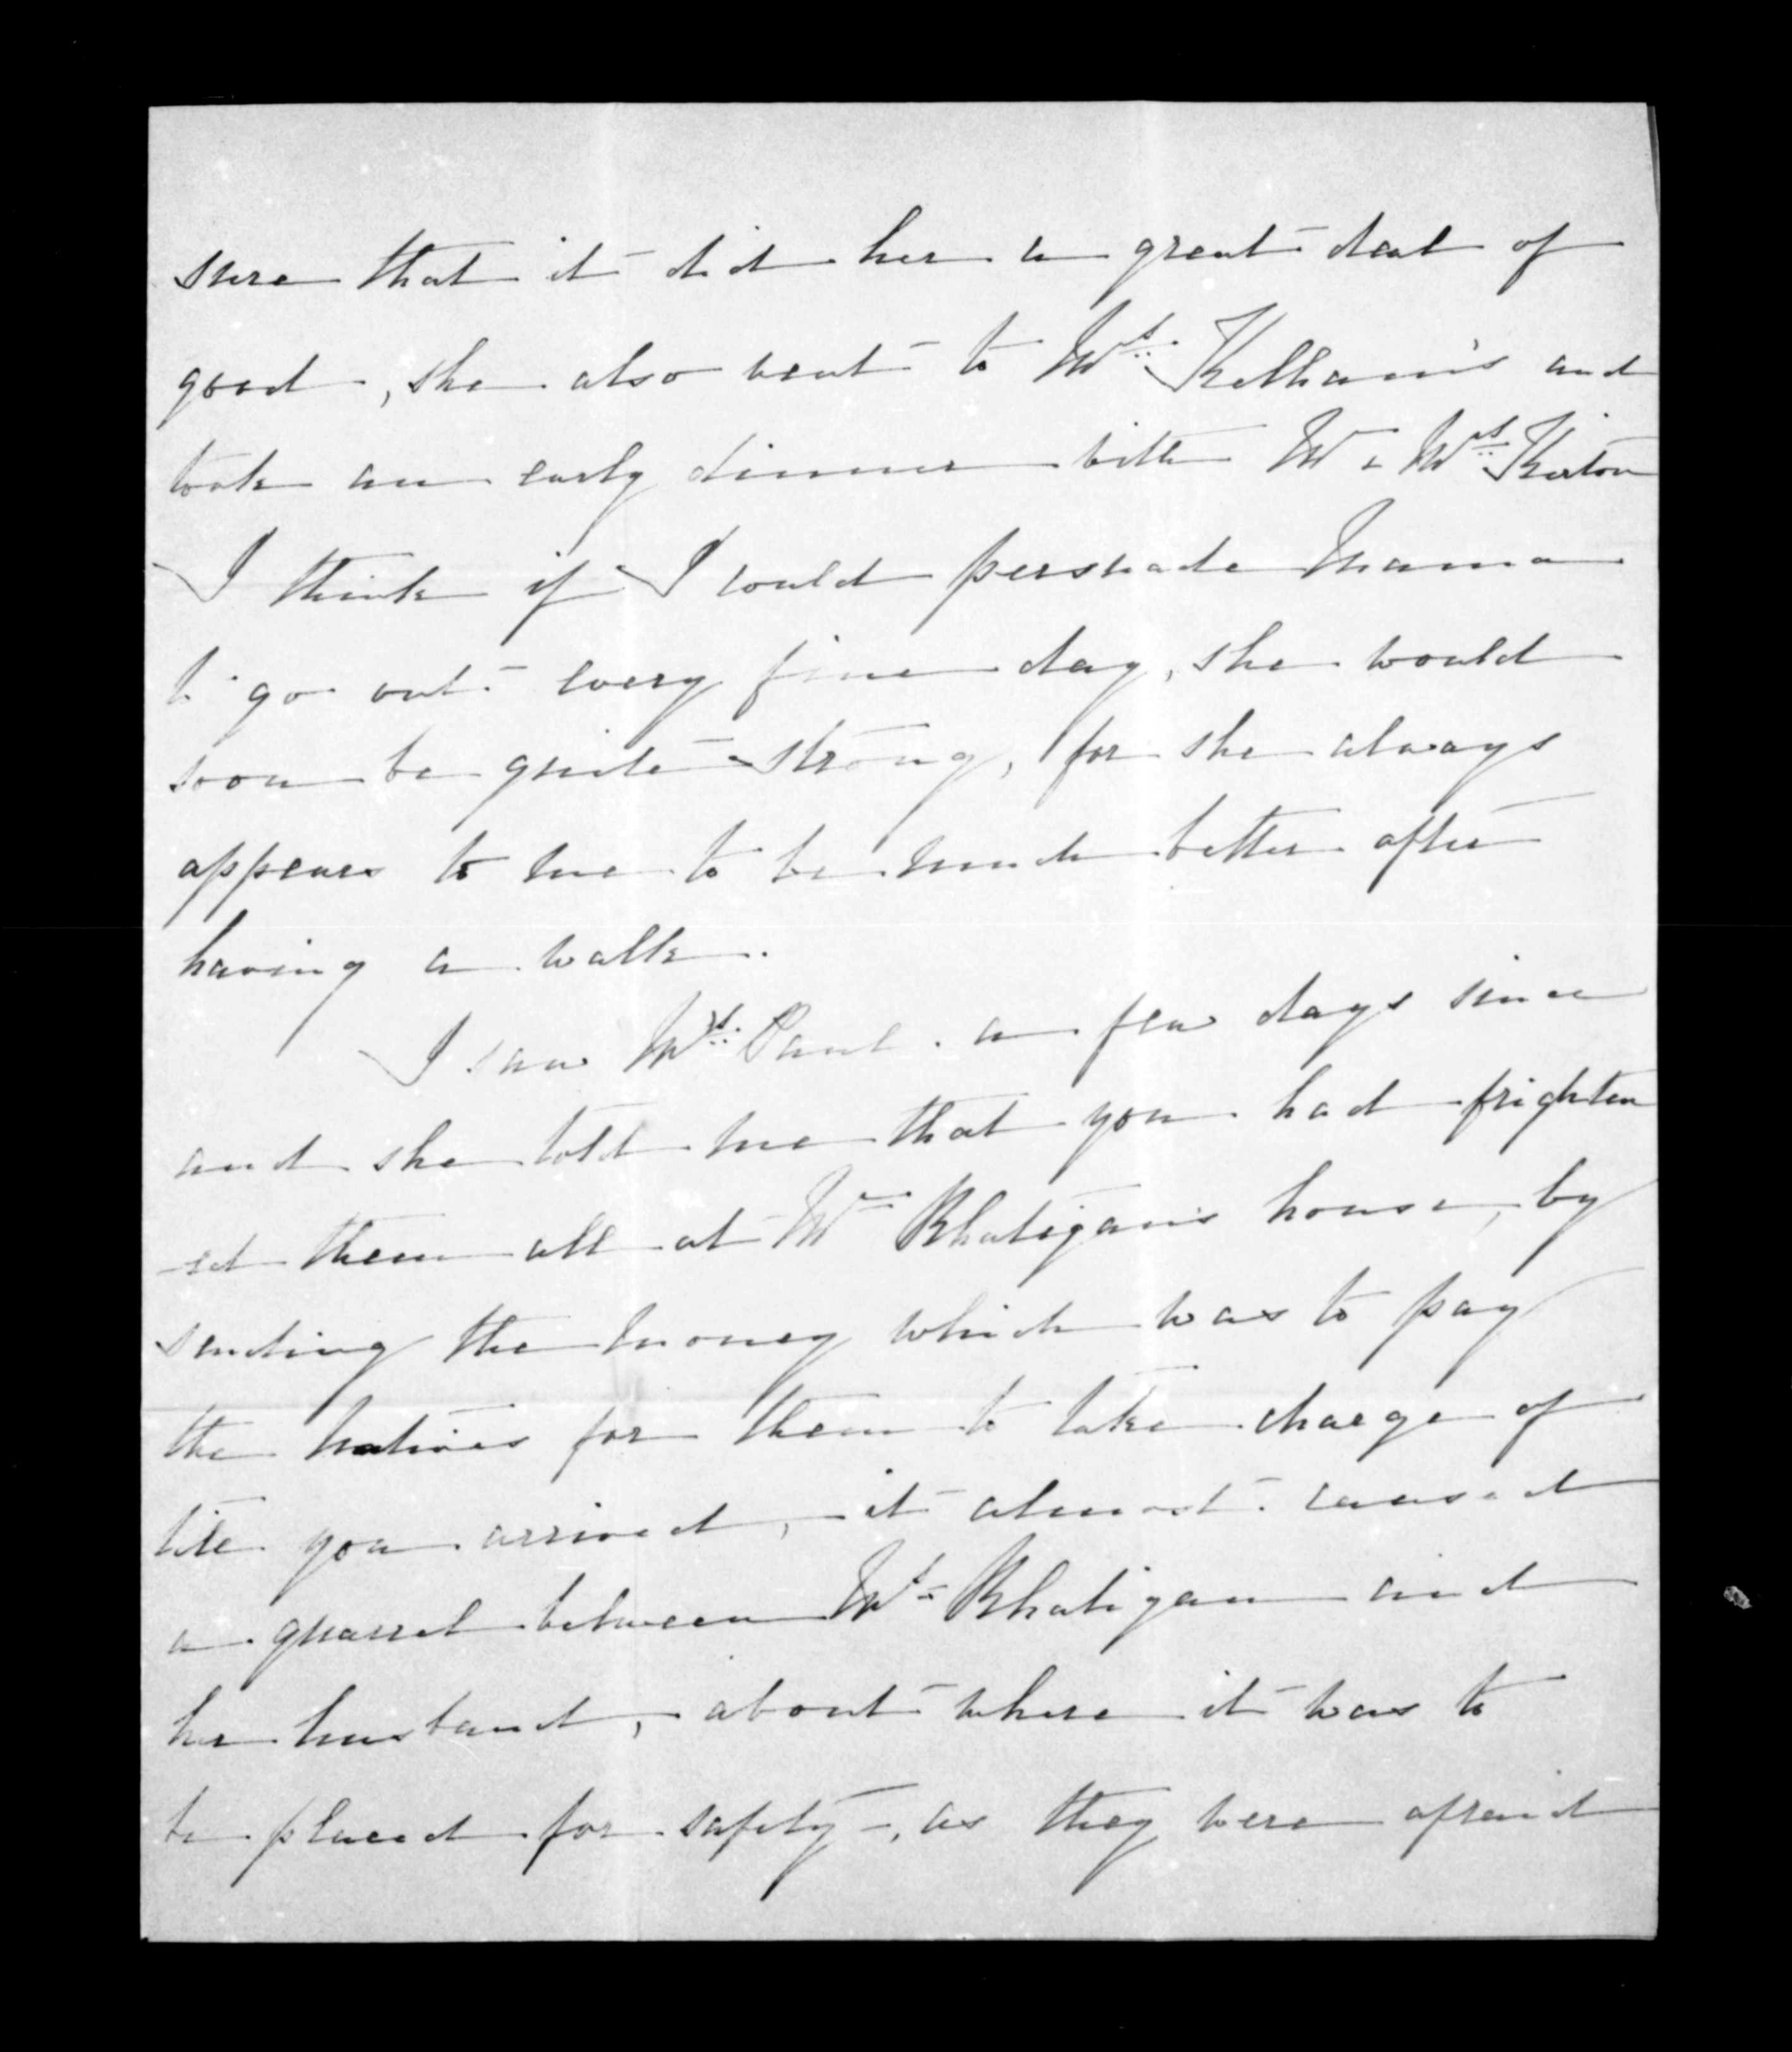 sure that it did her a great deal of
good, she also went to Mrs. Kelham's and
took an early dinner with Mr & Mrs. Kirton
I think if I could persuade Mama
to go out every fine day, she would
soon be quite strong, for she always
appears to me to be much better after
having a walk.
I saw Mrs. Paul. a few days since
and she told me that you had frighten
-ed them all at Mr Rhatigan's house, by
sending the money which was to pay
the natives for them to take charge of
till you arrived, it almost caused
a quarrel between Mrs Rhatigan and
her husband, about where it was to
be placed for safety, as they were afraid